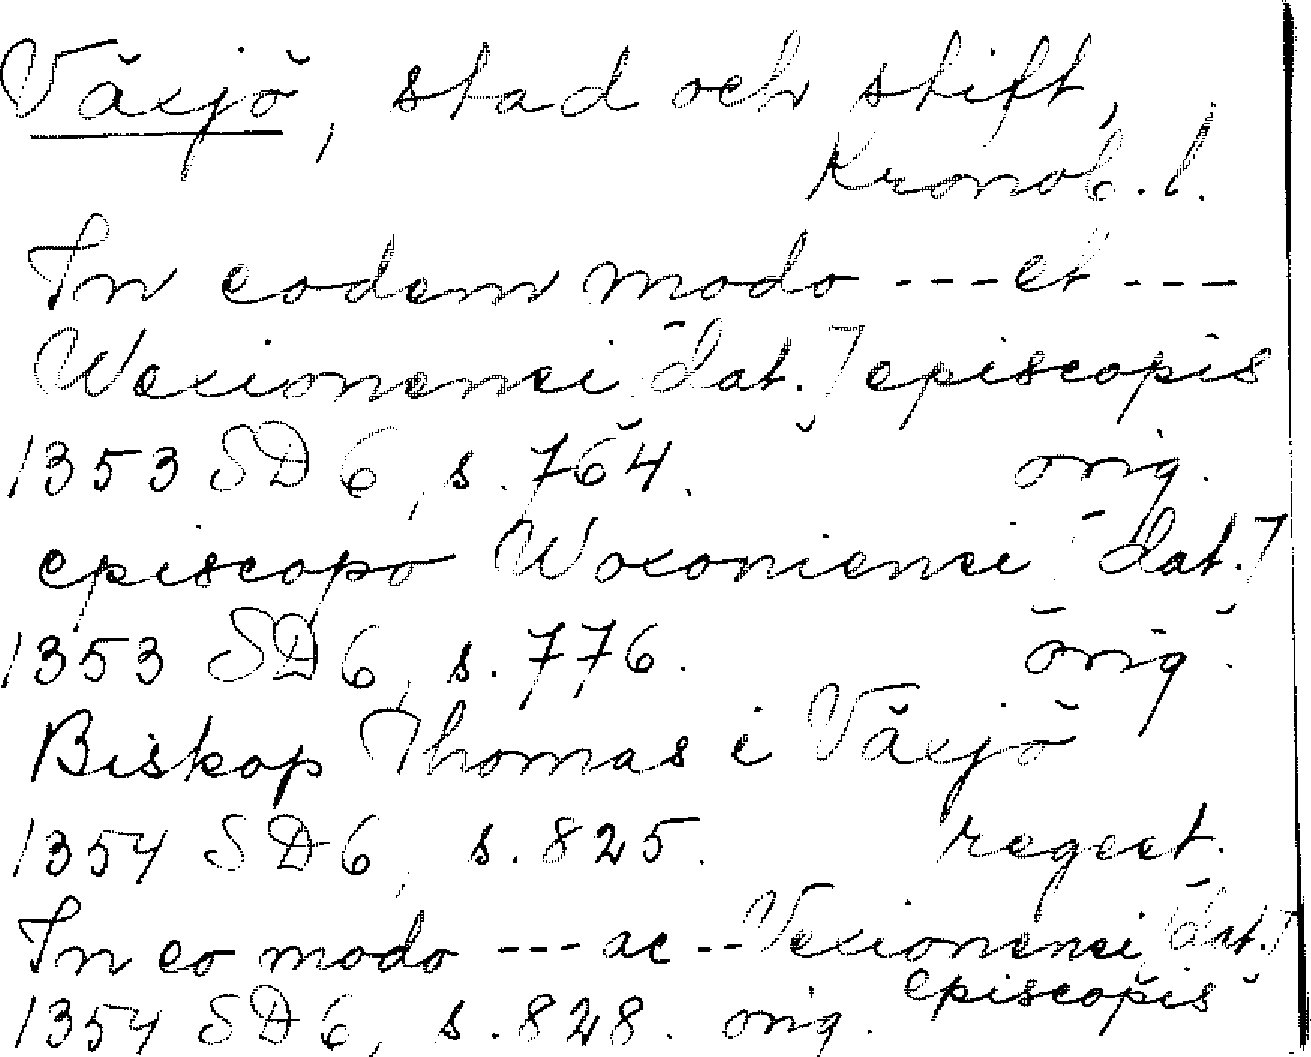 Växjö, stad och stift,
Kronob. l.
In eodem modo --- et ---
Wexionensi [dat.] episcopis
1353 SD 6, s. 764. orig.
episcopo Woxoniensi [dat.]
1353 SD 6, s. 776. orig.
Biskop Thomas i Växjö
1354 SD 6, s. 825. regest.
In eo modo --- ac -- Vexionensi [dat.]
episcopis
1354 SD 6, s. 828. orig.